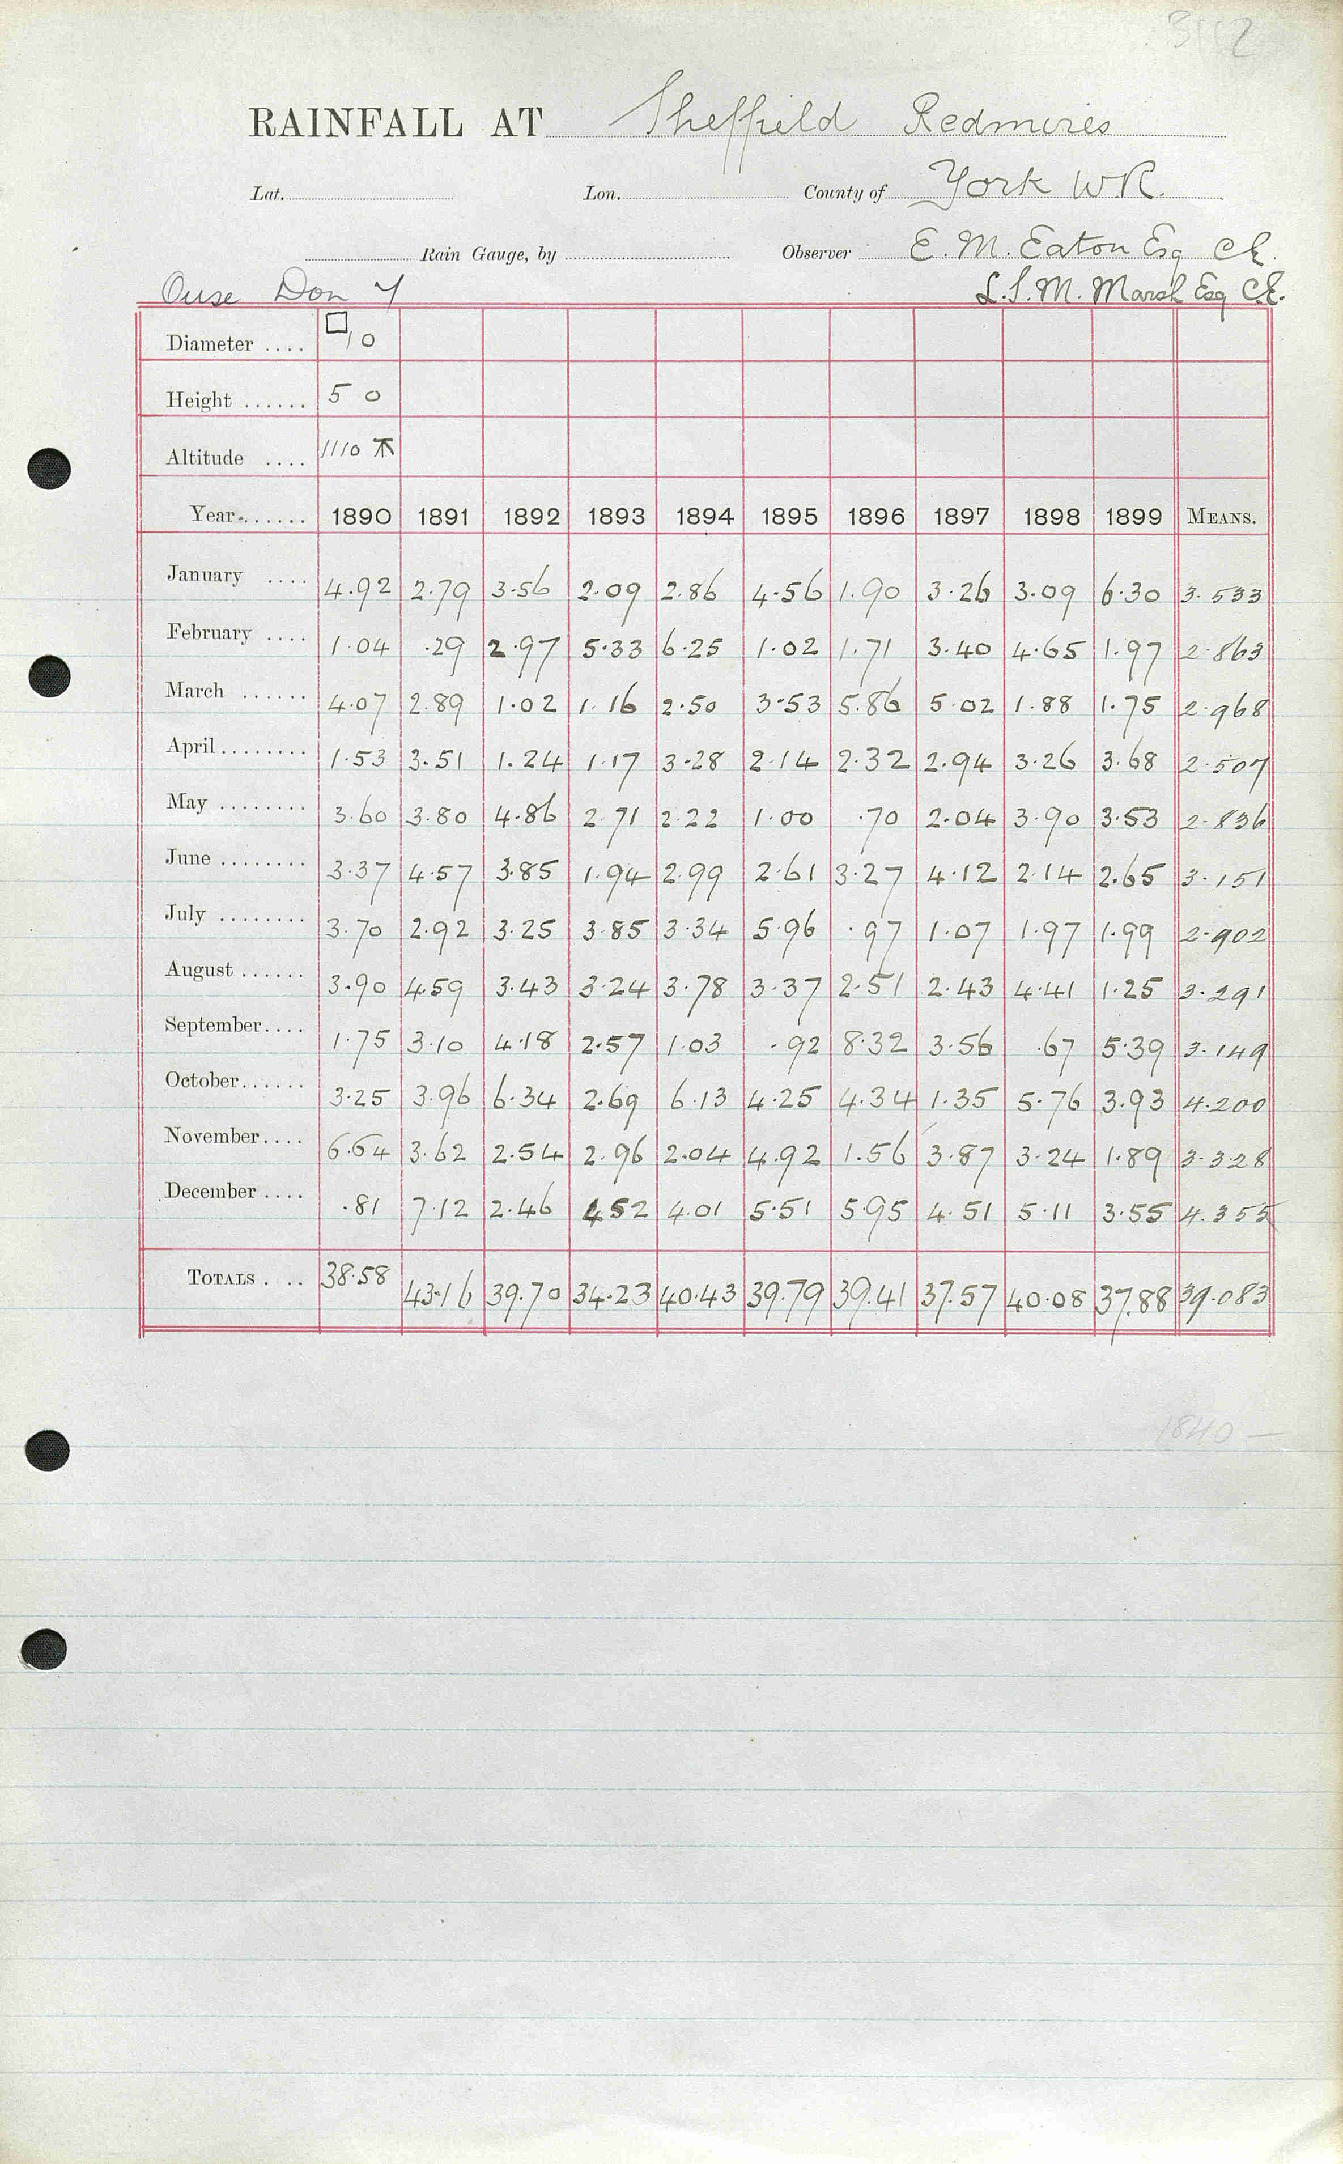 3112
RAINFALL AT Sheffield Redmires
Lat. Lon. County of York W.R.
Rain Gauge, by Observer E. M. Eaton Esq CE.
Ouse Don 7 L.S.M. Marsh Esq C.E.
Diameter .... □ 10
Height ...... 5 0
Altitude .... 1110
Year....... 1890 1891 1892 1893 1894 1895 1896 1897 1898 1899 MEANS.
January .... 4.92 2.79 3.56 2.09 2.86 4.56 1.90 3.26 3.09 6.30 3.533
February .... 1.04 .29 2.97 5.33 6.25 1.02 1.71 3.40 4.65 1.97 2.863
March ...... 4.07 2.89 1.02 1.16 2.50 3.53 5.86 5.02 1.88 1.75 2.968
April ........ 1.53 3.51 1.24 1.17 3.28 2.14 2.32 2.94 3.26 3.68 2.507
May ........ 3.60 3.80 4.86 2.71 2.22 1.00 .70 2.04 3.90 3.53 2.836
June ........ 3.37 4.57 3.85 1.94 2.99 2.61 3.27 4.12 2.14 2.65 3.151
July ........ 3.70 2.92 3.25 3.85 3.34 5.96 .97 1.07 1.97 1.99 2.902
August ...... 3.90 4.59 3.43 3.24 3.78 3.37 2.51 2.43 4.41 1.25 3.291
September.... 1.75 3.10 4.18 2.57 1.03 .92 8.32 3.56 .67 5.39 3.149
October...... 3.25 3.96 6.34 2.69 6.13 4.25 4.34 1.35 5.76 3.93 4.200
November.... 6.64 3.62 2.54 2.96 2.04 4.92 1.56 3.87 3.24 1.89 3.328
December .... .81 7.12 2.46 4.52 4.01 5.51 5.95 4.51 5.11 3.55 4.355
TOTALS . .. 38.58 43.16 39.70 34.23 40.43 39.79 39.41 37.57 40.08 37.88 39.083
1840 —